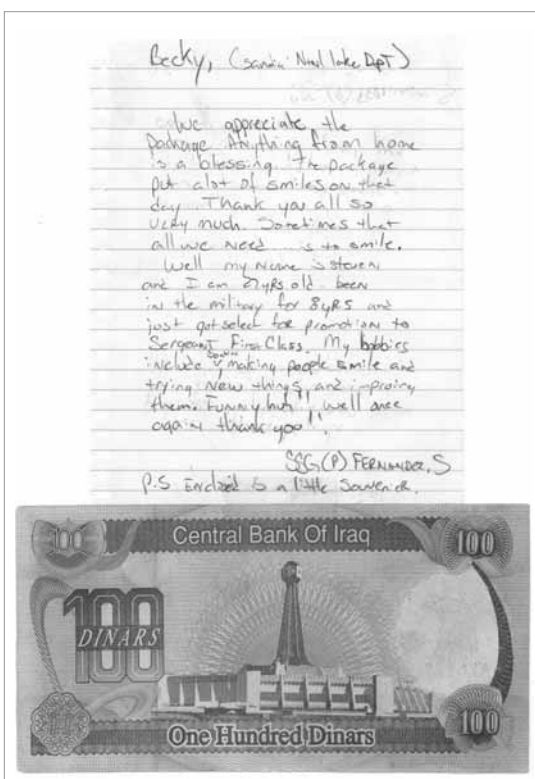 Becky, (Sandia Natl Labs Dpt)
We appreciate the
package. Anything from home
is a blessing. The package
put alot of smiles on that
day. Thank you all so
very much. Sometimes that
all we need is to smile.
Well my name is steven
and I am yRs old been
in the military for 8yRs and
just got select for promotion to
Sergeant First Class. My hobbies
include making people smile and
trying new things, and improving
them. Funny huh!! Well once
again thank you!!
SSG(P) FERNANDEZ, S
P.S Enclosed is a little Souvenier.
Central Bank Of Iraq
100
100
100
DINARS
100
One Hundred Dinars